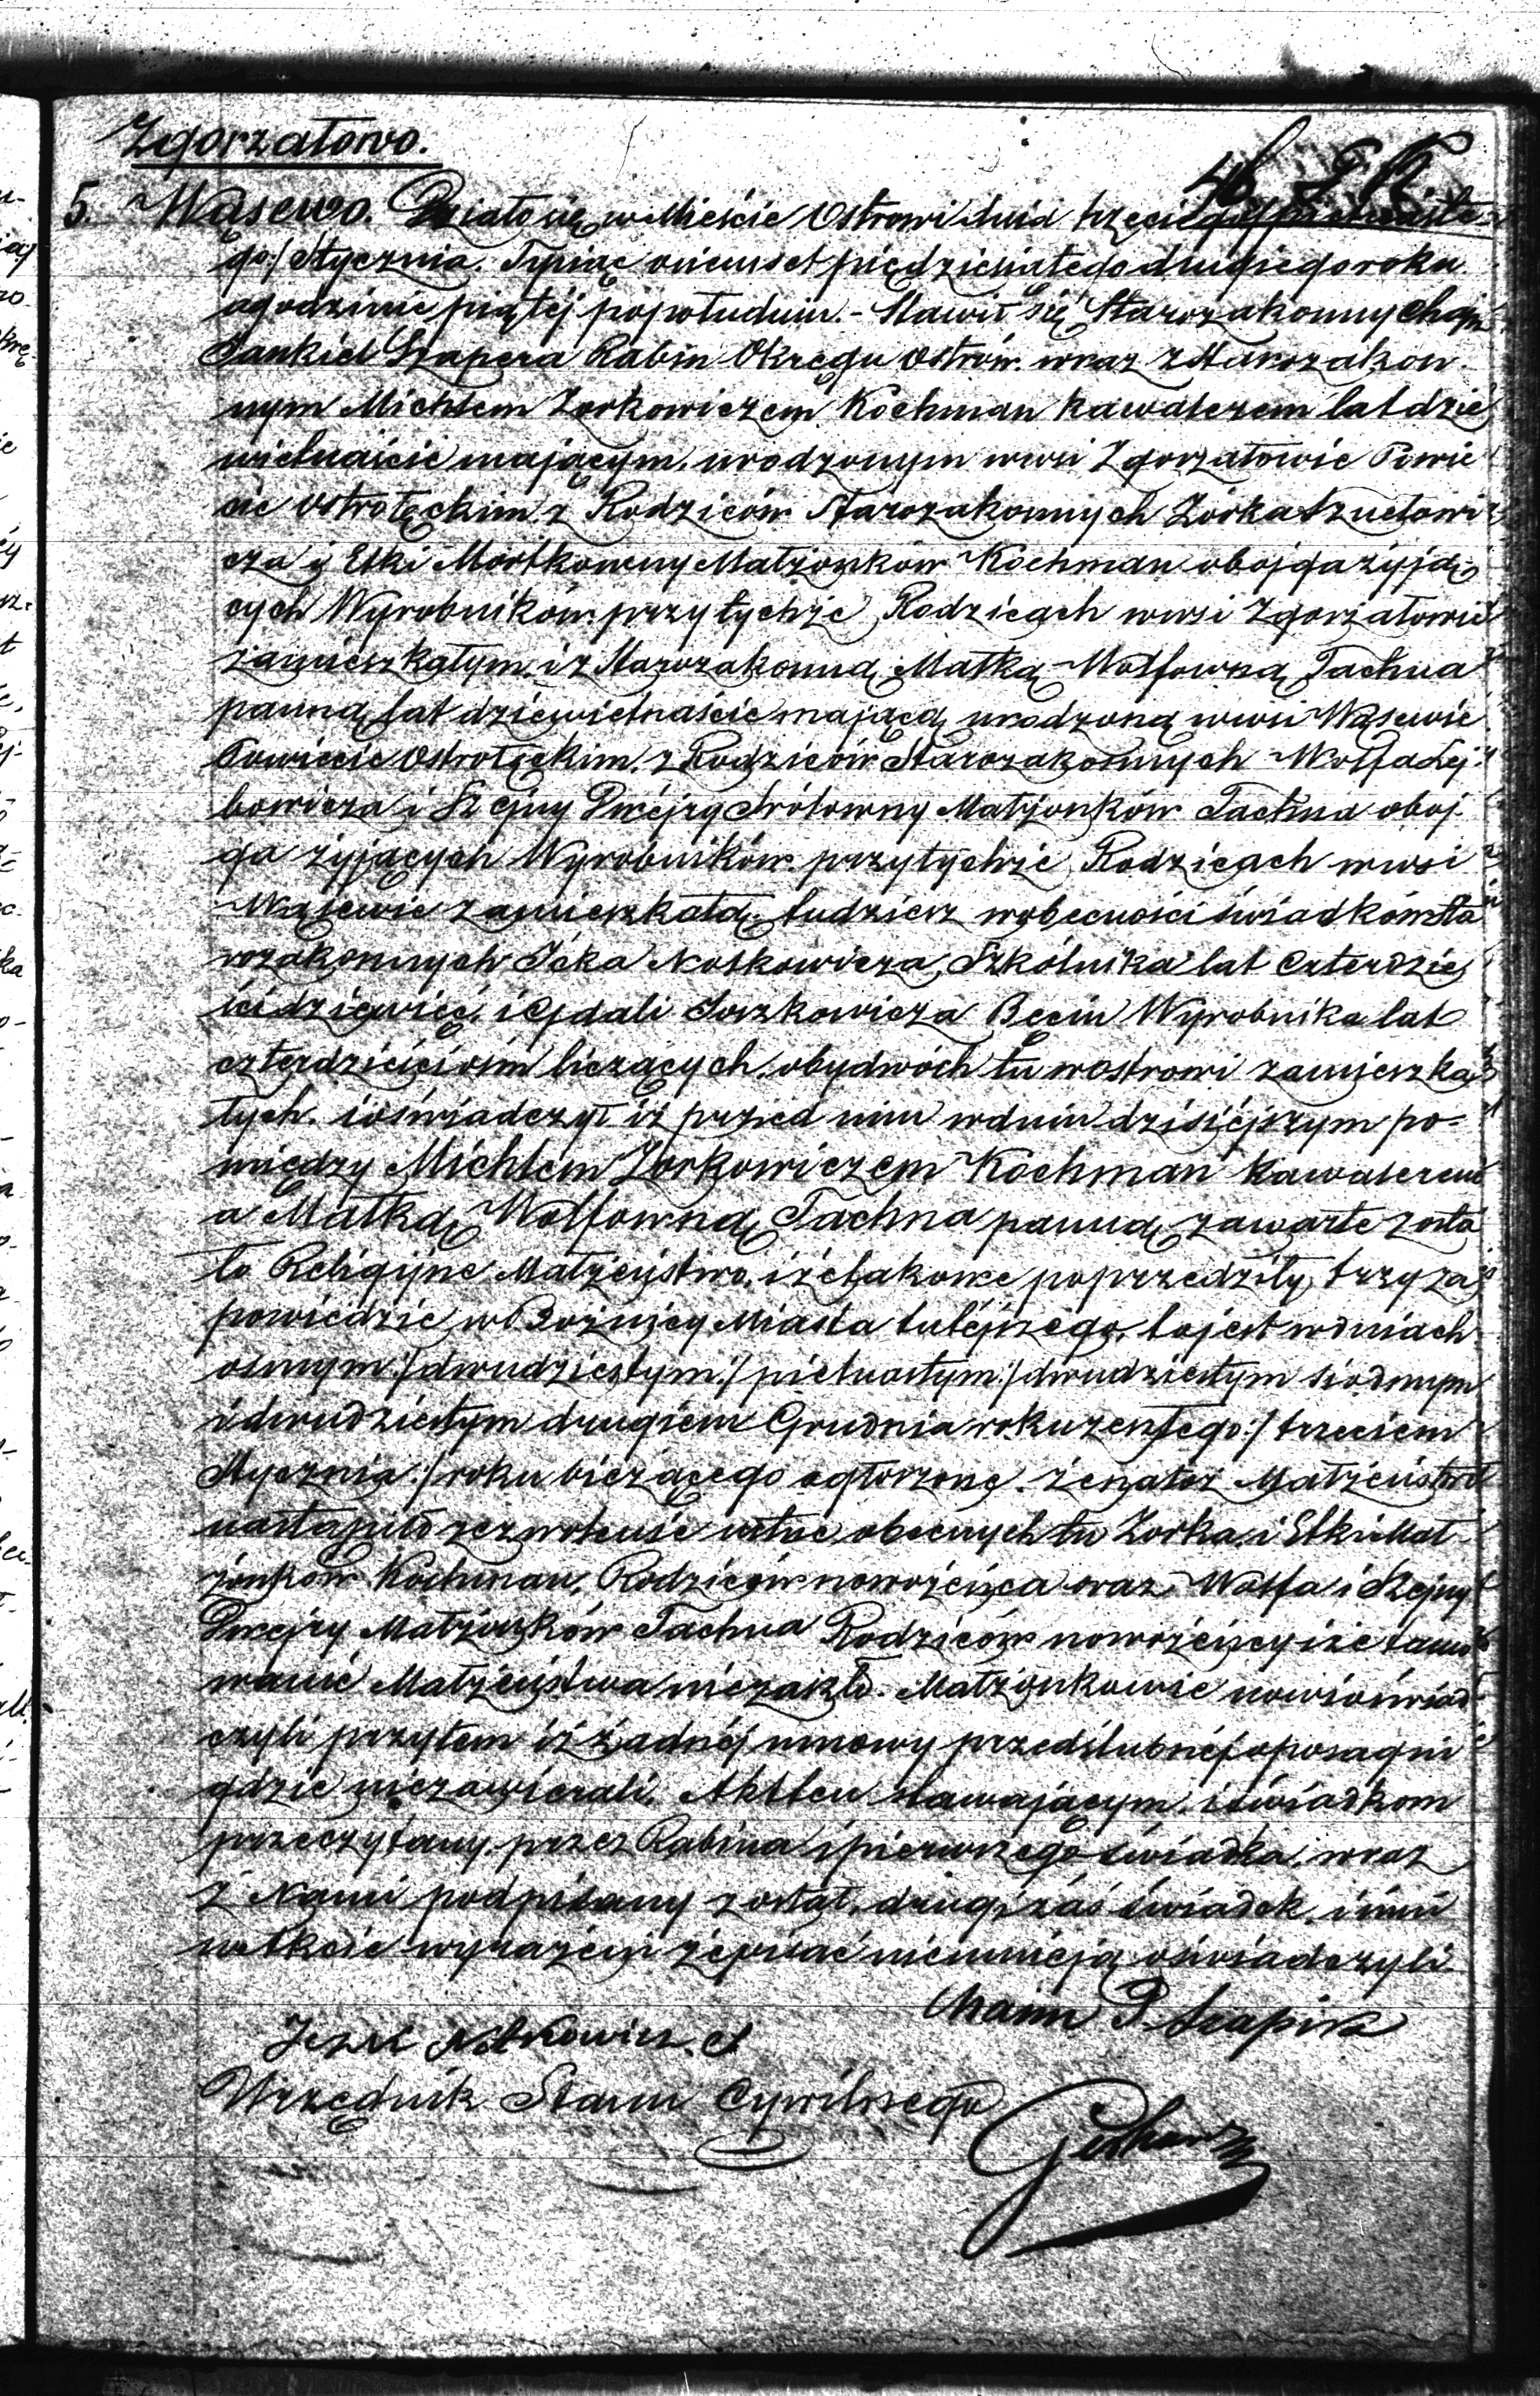 Zgorzałowo.
46
5. Wąsewo. Działo się w Mieście Ostrowi dnia trzeciego/
go:/ Stycznia. Tysiąc ośmset piędziesiątego drugiego roku
o godzinie piątéj popołudniu. - Stawił się Starozakonny
Jankiel Szapera Rabin Okręgu Ostrów. wraz z Starozakon
nym Michlem Zorkowiczem Kochman kawalerem lat dzie
więtnaście mającym, urodzonym wwsi Zgorzałowie Powie
cie Ostrołęckim, z Rodziców Starozakonnych Zorka
cza i Elki Mortkowny Małżonków Kochman obojga żyją
cych Wyrobników przy tychże Rodzicach wwsi Zgorzałowie
zamieszkałym. i z Starozakonną Matką Wolfowną Tachna
panną lat dziewietnaście mającą urodzoną wwsi Wąsewie
Powiecie Ostrołęckim, z Rodziców Starozakonnych Wolfa Lej
bowicza i Szejny Dwejry Małżonków Tachna oboj
ga żyjących Wyrobników przy tychże Rodzicach wwsi
Wąsewie zamieszkałą. tudzież wobecności świadków Sta
rozakonnych Icka Noskowicza, Szkólnika lat Czterdzie
ści dziewięć, i Gdali Joszkowicza Wyrobnika lat
czterdzieści ośm liczących, obydwóch tu wostrowi zamieszka
łych. i oświadczył iż przed nim wdniu dzisiéjszym po-
między Michlem Zorkowiczem Kochman kawalerem
a Matką Wolfowną Tachna panną zawarte zosta
ło Religijne Małżeństwo. i że takowe poprzedziły trzy za
powiedzie w Bożnicy Miasta tutéjszego, to jest wdniach
osmym:/ dwudziestym:/ pietnastym:/ dwudziestym siódmym
i dwudziestym drugiem Grudnia roku zeszłego:/ trzeciem
Stycznia:/ roku bieżącego ogłoszone. że na toż Małżeństwo
nastąpiło zezwolenie ustne obecnych tu Zorka i Elki Mał
żonków Kochman, Rodziców nowożeńca oraz Wolfa i Szejny
Dwejry Małżonków Tachna Rodziców nowożeńcy i że tamo
wanie Małżeństwa niezaszło. Małżonkowie nowi oświad
czyli przytem iż żadnéj umowy przedślubnéj oposagu ni
gdzie niezawierali. Akt ten stawającym, i świadkom
przeczytany. przez Rabina i pierwszego świadka. wraz
z Nami podpisany został, drugi zaś świadek, i inni
w Akcie wyrażeni że pisać nieumieją oświadczyli
Chaim
Noskowicz
Urzędnik Stanu Cywilnego